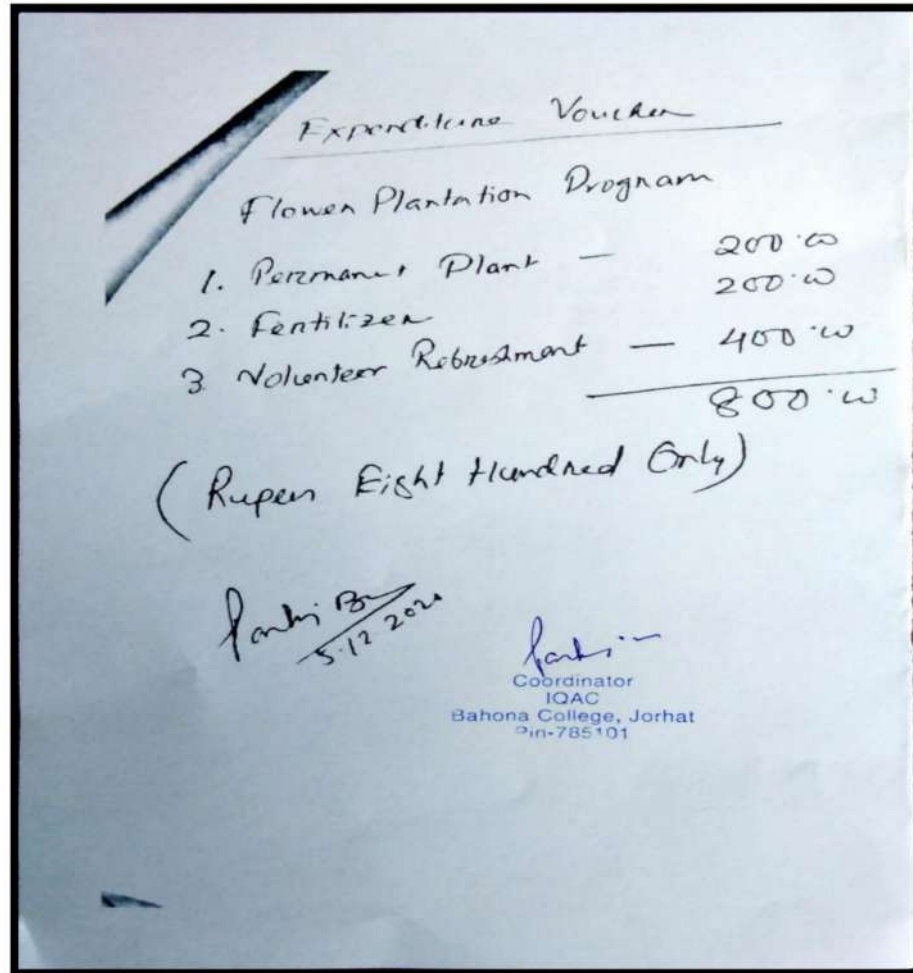 Expenditure Voucher
Flower Plantation Program
1. Permanent Plant — 200.00
2. Fertilizer 200.00
3. Volunteer Refreshment — 400.00
800.00
(Rupees Eight Hundred Only)
5.12.2020
Coordinator
IQAC
Bahona College, Jorhat
Pin-785101